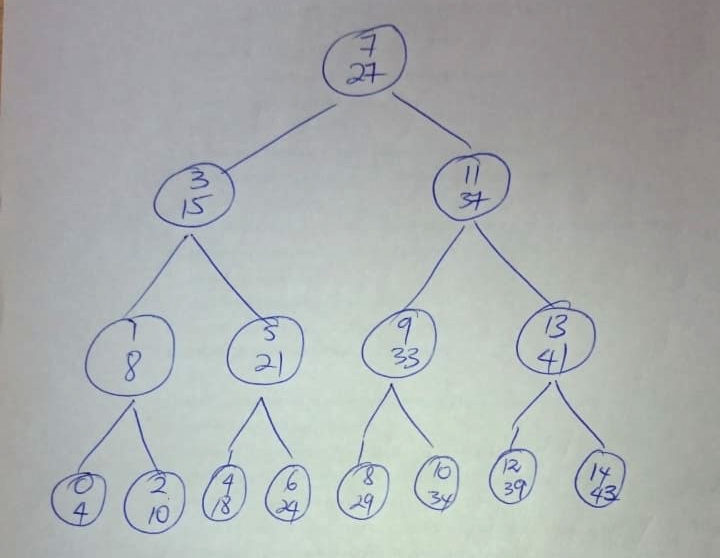 7
27
3
15
11
37
1
8
5
21
9
33
13
41
0
4
2
10
4
18
6
24
8
29
10
34
12
39
14
43